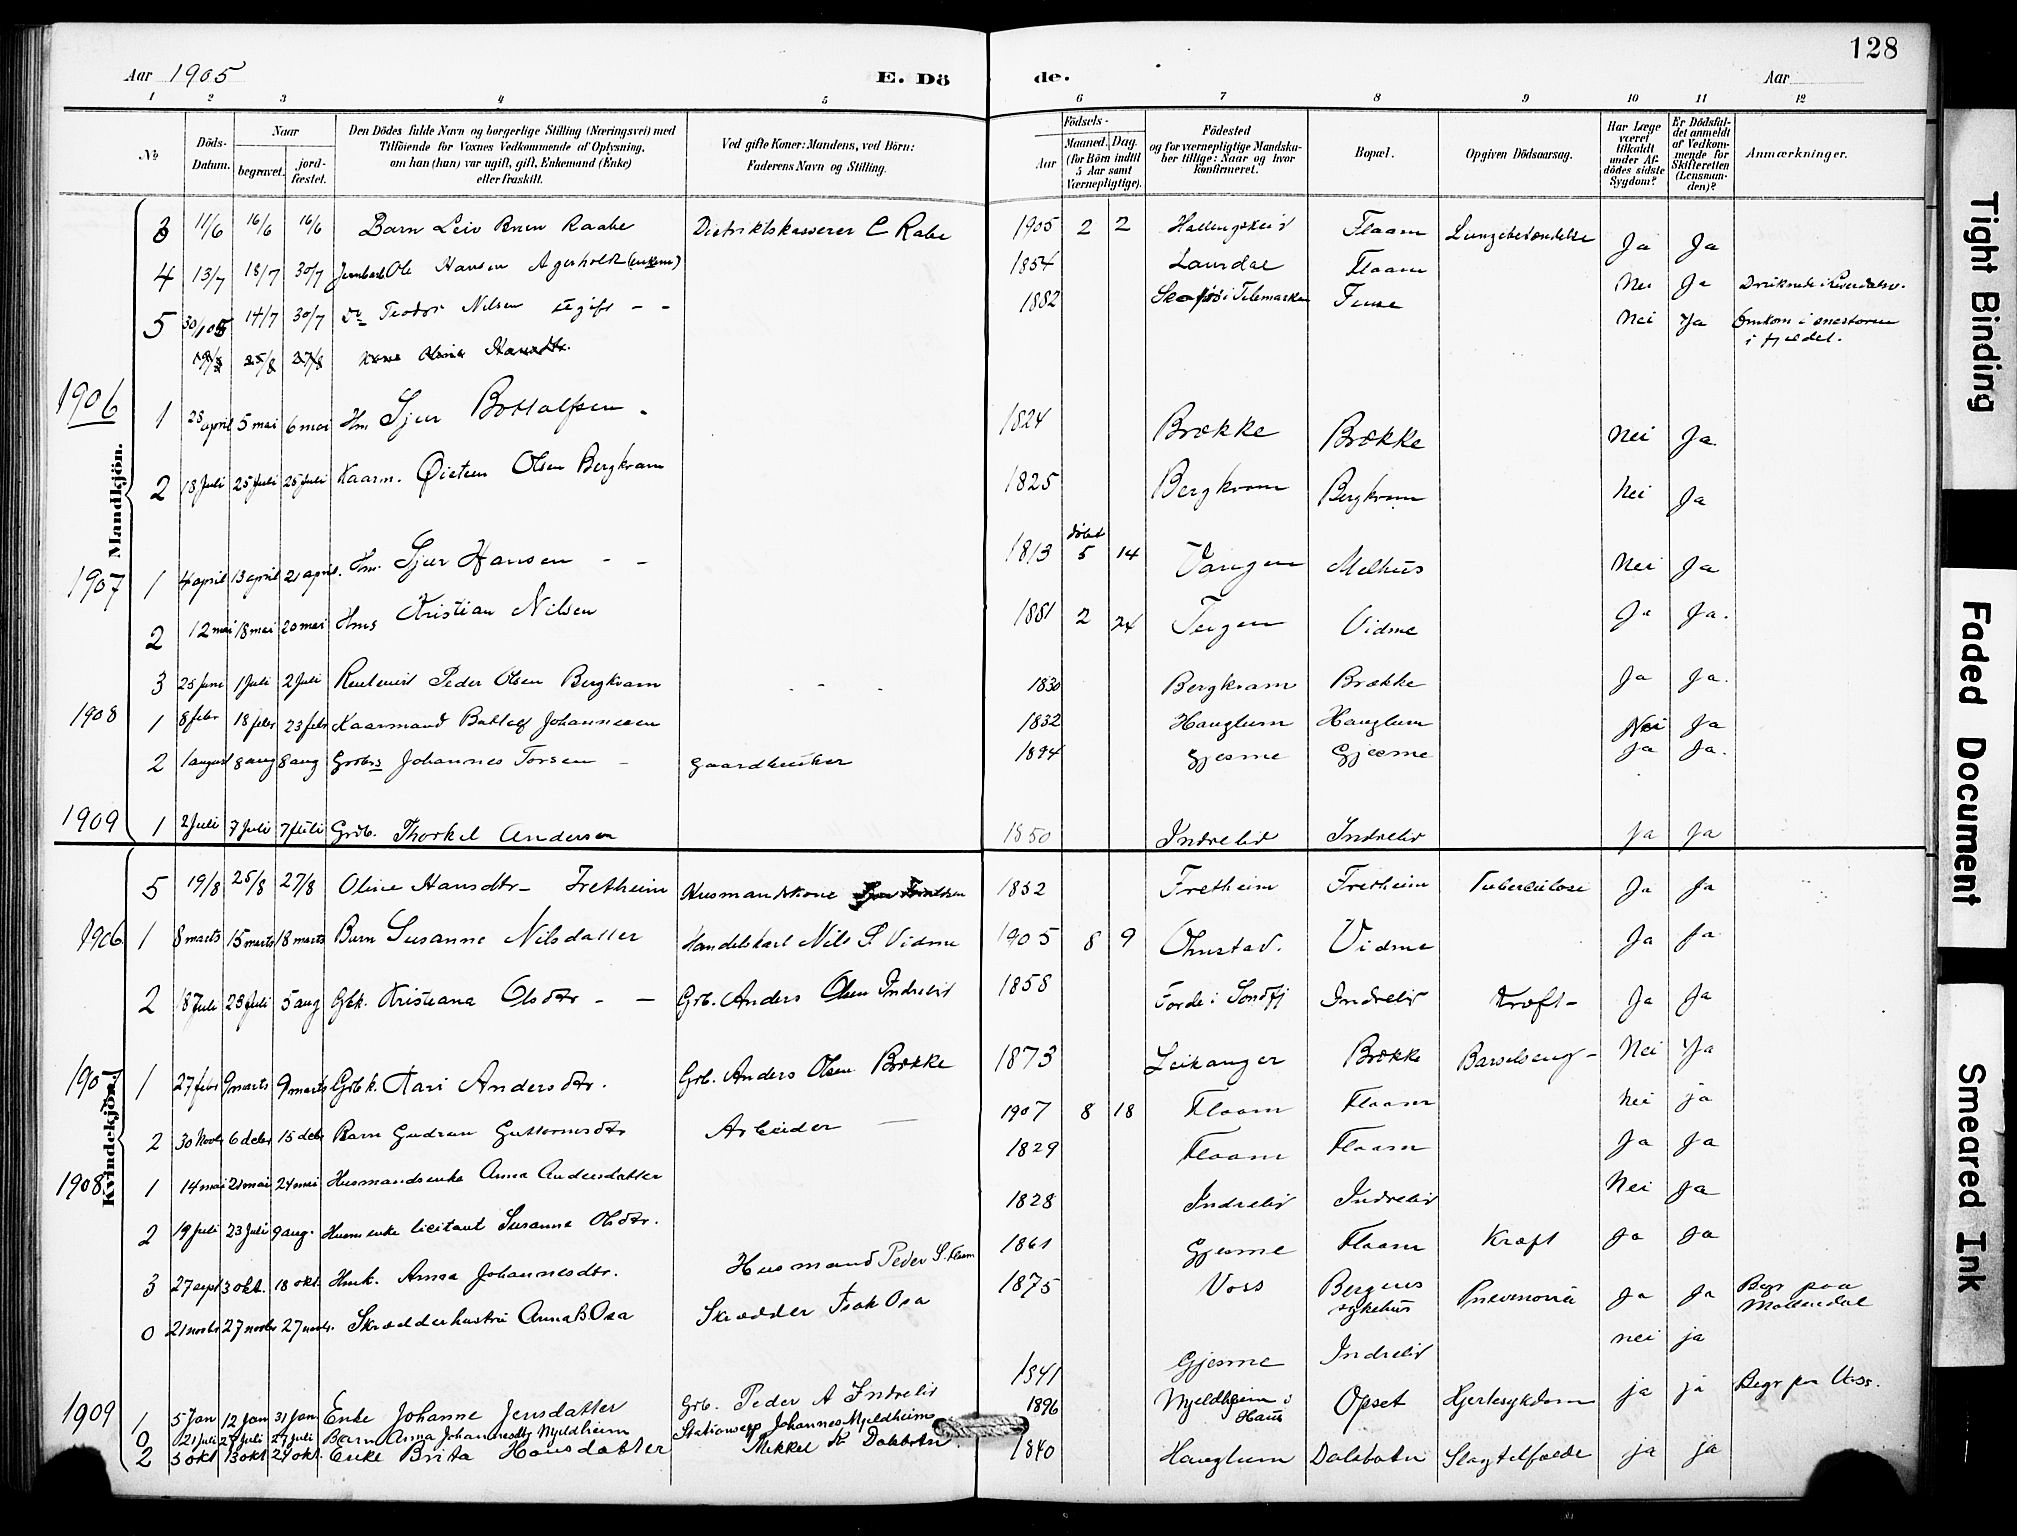 128
Aar 1905 E. Dö de. Aar
1 2 3 4 5 6 7 8 9 10 11 12
No Döds-Datum. Naar begravet. jord-fæstet. Den Dödes fulde Navn og borgerlige Stilling (Næringsvei) med Tilföiende for Voxnes Vedkommende af Oplysning, om han (hun) var ugift, gift, Enkemand (Enke) eller fraskilt. Ved gifte Koner: Mandens, ved Börn: Faderens Navn og Stilling. Födsels- Aar Maaned. Dag. (for Börn indtil 5 Aar samt Værnepligtige). Födested og for værnepligtige Mandskaber tillige: Naar og hvor konfirmeret. Bopæl. Opgiven Dödsaarsag. Har Læge været tilkaldt under Afdödes sidste Sygdom? Er Dödsfaldet anmeldt af Vedkommende for Skifteretten (Lensmanden)? Anmærkninger.
Mandkjön.
3 11/6 16/6 16/6 Barn Leiv Raabe Distriktskasserer C Rabe 1905 2 2 Hallingskeid Flaam Lungebetændelse Ja Ja
4 13/7 18/7 30/7 Ole Hansen Agerholt 1854 Laurdal Flaam Nei Ja
5 30/10 14/7 30/7 Do Teodor Nilsen ugift - - 1882 i Telemarken Finse Nei Ja Omkom i snestorm i fjeldet.
19/8 25/8 27/8 Kone Oline Hansdtr.
1906 1 28 april 5 mai 6 mai Hm Sjur Bottolfsen - 1824 Brække Brække Nei Ja.
2 18 Juli 25 Juli 25 Juli Kaarm. Øistein Olsen Bergkvam 1825 Bergkvam Bergkvam Nei Ja
1907 1 4 april 13 april 21 april. Hm. Sjur Hansen - - 1813 døbt 5 14 Vangen Melhus Nei Ja
2 12 mai 18 mai 20 mai Hms Kristian Nilsen 1881 2 24 Tergen Vidme Ja Ja.
3 25 Juni 1 Juli 2 Juli Peder Olsen Bergkvam 1830 Bergkvam Brække Ja Ja.
1908 1 8 febr 18 febr 23 febr Kaarmand Bottolf Johannesen 1832 Hauglum Hauglum Nei Ja
2 1 august 8 aug 8 aug Grdbrs Johannes Torsen - Gaardbruker 1894 Gjesme Gjesme Ja Ja.
1909 1 2 Juli 7 Juli 7 Juli Grdb. Thorkel Andersen 1850 Indrelid Indrelid Ja Ja
Kvindekjön.
5 19/8 25/8 27/8 Oline Hansdtr - Fretheim Husmandskone 1852 Fretheim Fretheim Tuberculose Ja Ja
1906 1 8 marts 15 marts 18 marts Barn Susanne Nilsdatter Handelskarl Nils S. Vidme 1905 8 9 Onstad. Vidme Ja Ja
2 18 Juli 23 Juli 5 aug Gbk. Kristiana Olsdtr - - Grb. Anders Olsen Indrelid 1858 Førde i Søndfj Indrelid Kræft - Ja Ja
1907 1 27 febr 9 marts 9 marts Grbk. Kari Andersdtr. Grb. Anders Olsen Brække 1873 Leikanger Brække Barselseng - Nei Ja
2 30 Novbr 6 debr 15 debr Barn Gudrun Guttormsdtr Arbeider 1907 8 18 Flaam Flaam Nei ja
1908 1 14 mai 21 mai 24 mai Husmandsenke Anna Andersdatter 1829 Flaam Flaam Ja Ja
2 19 Juli 23 Juli 9 aug. Husmenke Susanna Olsdtr. 1828 Indrelid Indrelid Nei Ja
3 27 sept 3 okt. 18 okt. Hmk. Anna Johannesdtr. Husmand Peder S. Flaam 1861 Gjesme Flaam Kræft Ja Ja
0 21 novbr 27 novbr 27 novbr. Skrædderhustru Anna B Osa Skrædder Isak Osa 1875 Voss Bergens sykehus Pnevmonia Ja Ja Begr paa Møllendal
1909 1 5 Jan 12 Jan 31 Jan Enke Johanne Jensdatter Grb. Peder A Indrelid 1841 Gjesme Indrelid nei ja
0 21 juli 27 juli 27 juli Barn Anna Johannesdtr Myldheim Johannes Myldheim 1896 Myeldheim i Haus Opset Hjertesykdom ja ja Begr paa Voss.
2 5 okt 13 okt 24 okt. Enke Brita Hansdatter Mikkel Dalsbotn 1840 Hauglum Dalsbotn Slagtilfælde ja ja
Tight Binding
Faded Document
Smeared Ink